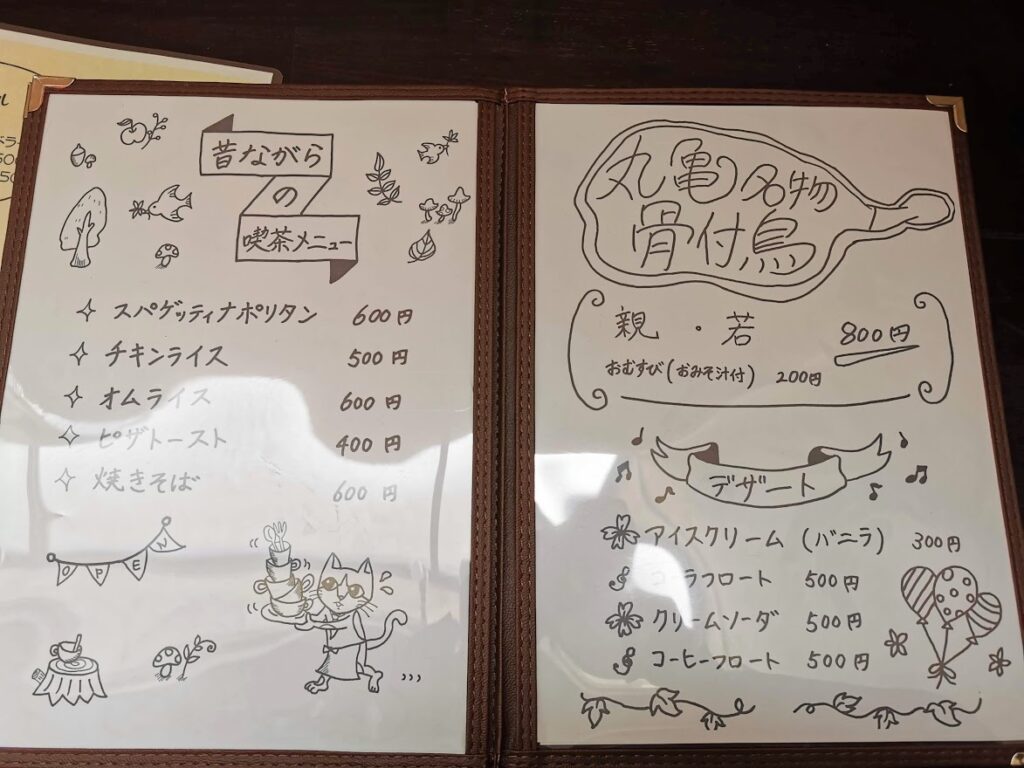 昔ながら
の
喫茶メニュー
スパゲッティナポリタン 600円
チキンライス 500円
オムライス 600円
ピザトースト 400円
焼きそば 600円
OPEN
丸亀名物
骨付鳥
親・若 800円
おむすび(おみそ汁付) 200円
デザート
アイスクリーム (バニラ) 300円
コーラフロート 500円
クリームソーダ 500円
コーヒーフロート 500円